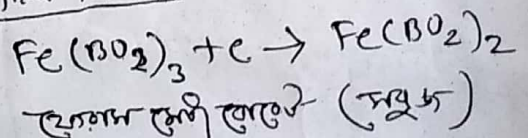 Fe(BO₂)₃ + C → Fe(BO₂)₂
ফেরাস মেটা বোরেট (সবুজ)